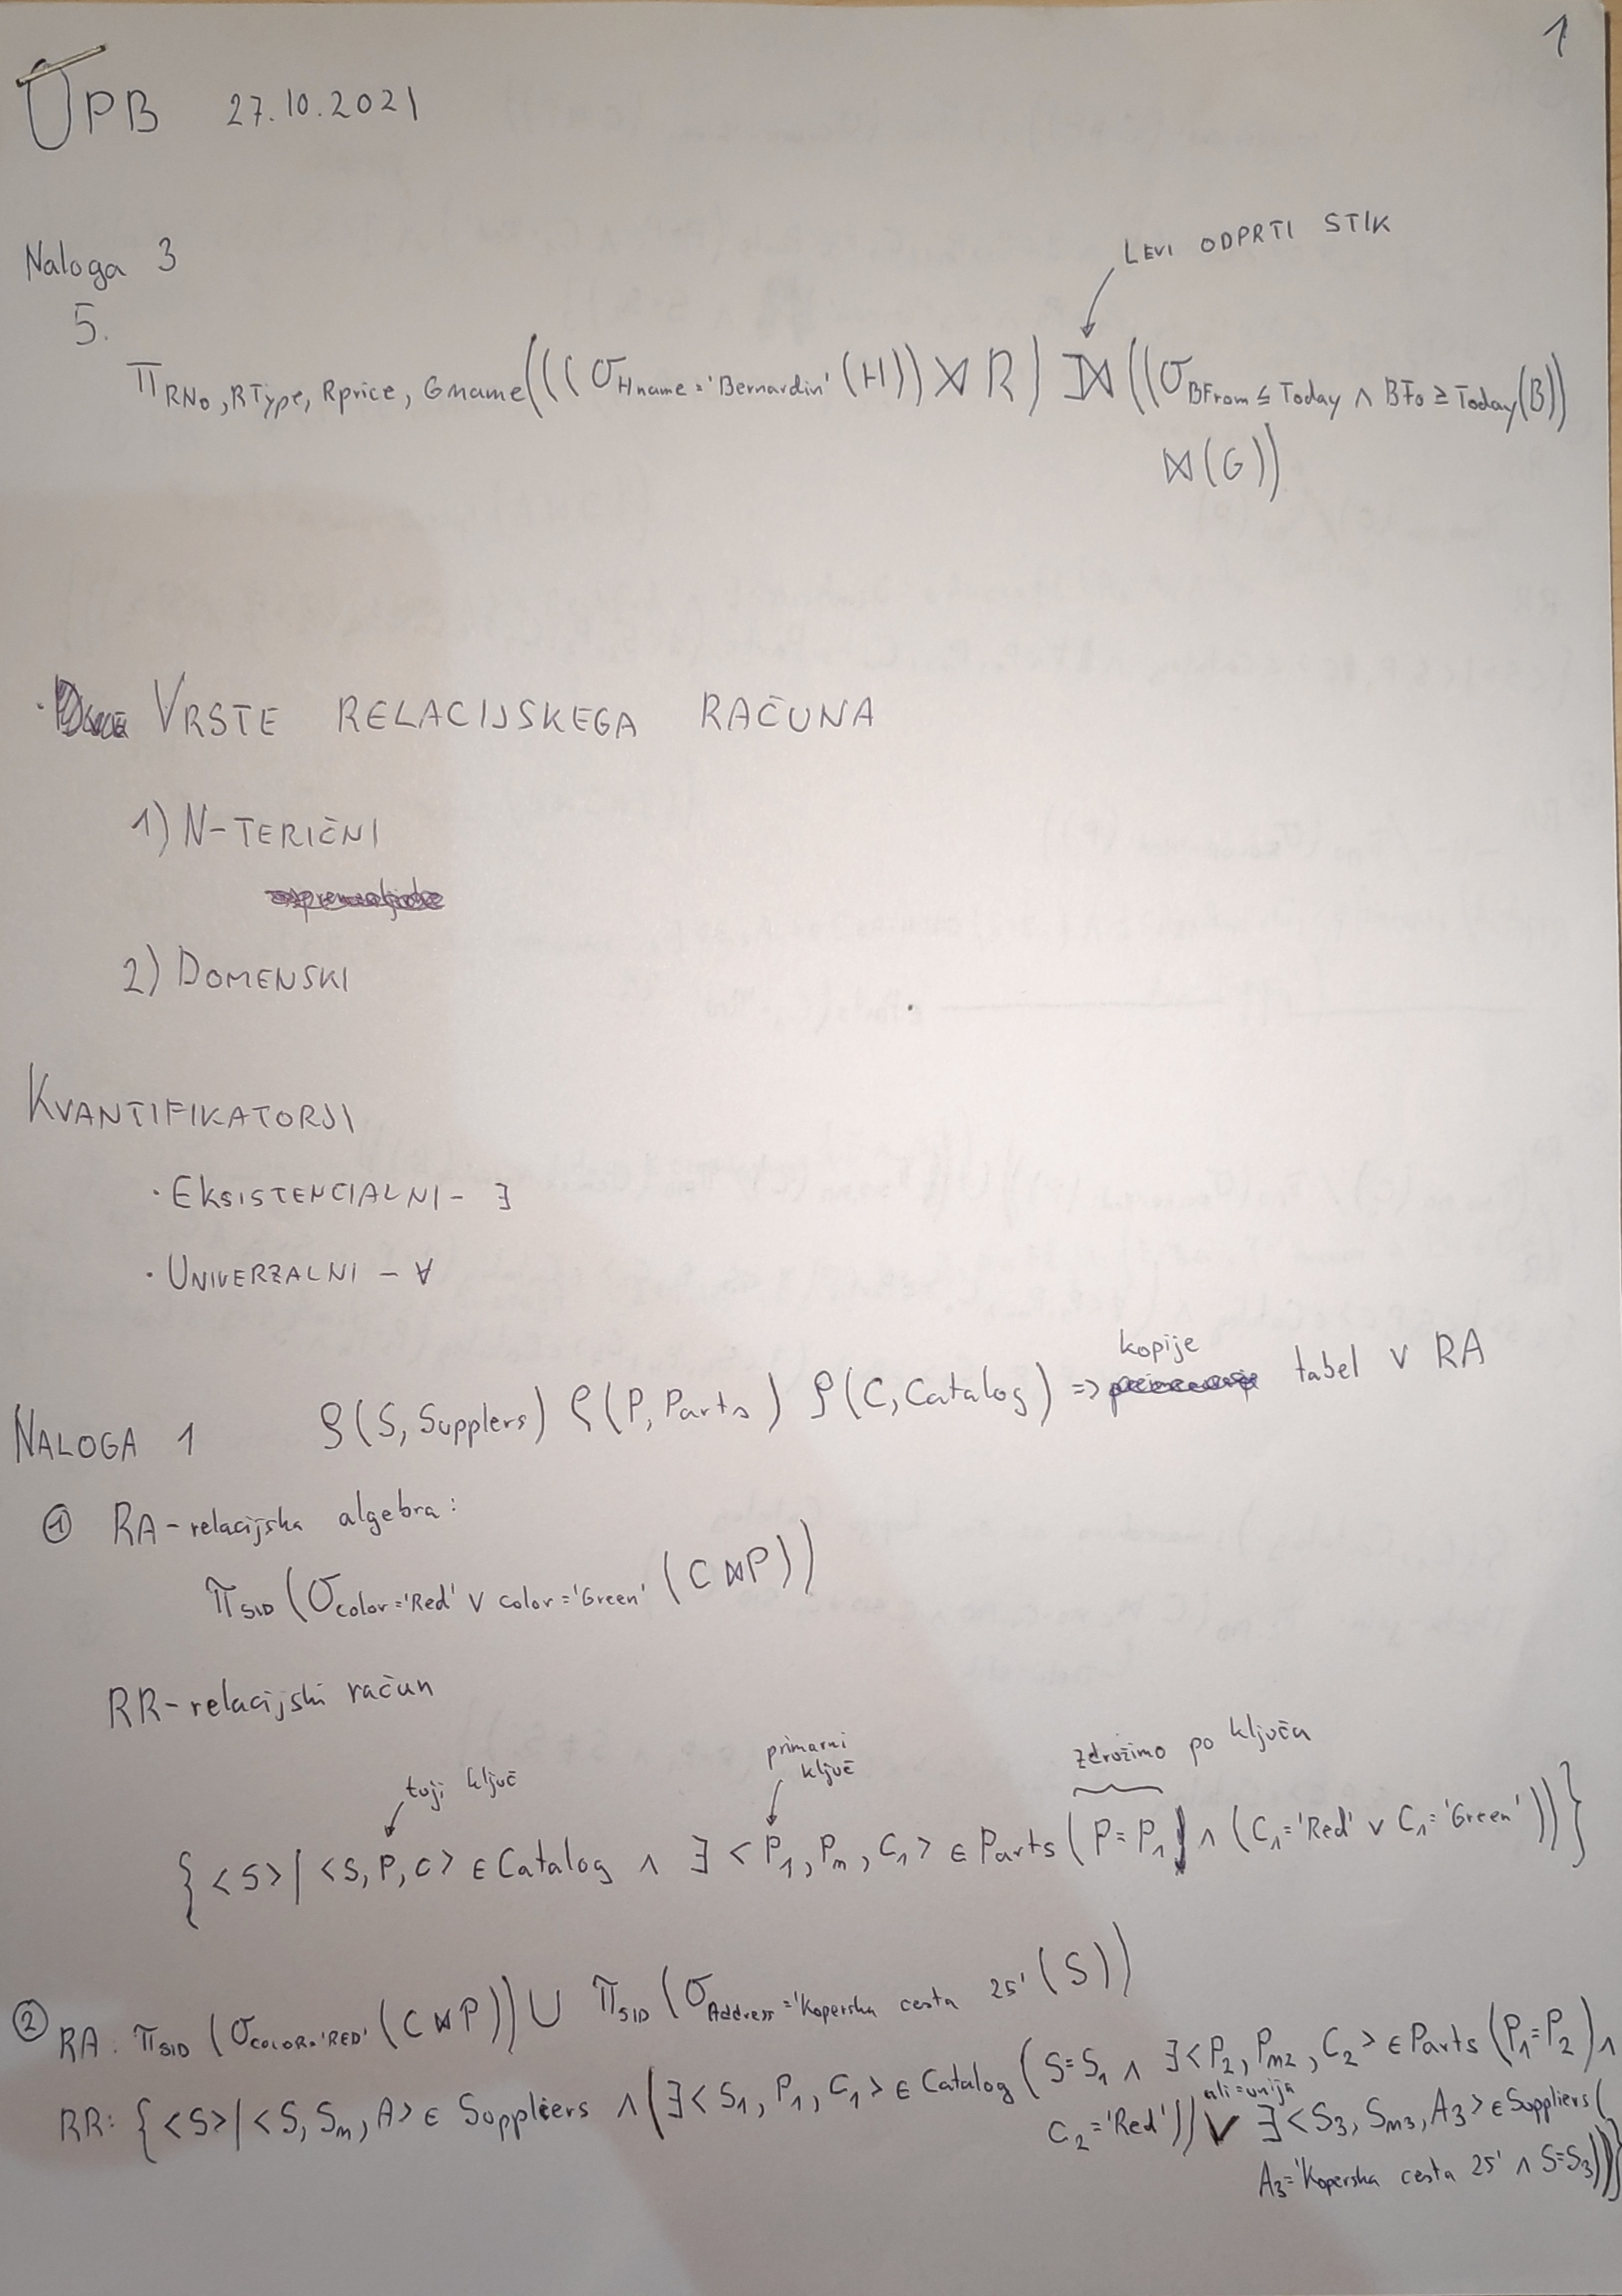 1
UPB 27.10.2021
LEVI ODPRTI STIK
Naloga 3
5.
π RNo, RType, Rprice, Gname (((σ Hname='Bernardin' (H)) ⋈ R) ⟕ ((σ BFrom ≤ Today ∧ BTo ≥ Today (B))
⋈ (G))
· VRSTE RELACIJSKEGA RAČUNA
1) N-TERIČNI
2) DOMENSKI
KVANTIFIKATORJI
· EKSISTENCIALNI - ∃
· UNIVERZALNI - ∀
kopije
NALOGA 1 ρ(S, Supplers) ρ(P, Parts) ρ(C, Catalog) => tabel v RA
① RA - relacijska algebra:
π SID (σ color='Red' ∨ color='Green' (C ⋈ P))
RR - relacijski račun
tuji ključ primarni ključ združimo po ključu
{<S> | <S, P, C> ∈ Catalog ∧ ∃ <P₁, Pn, C₁> ∈ Parts (P = P₁) ∧ (C₁='Red' ∨ C₁='Green'))}
② RA: π SID (σ COLOR='RED' (C ⋈ P)) ∪ π SID (σ Address='Koperska cesta 25' (S))
RR: {<S> | <S, Sn, A> ∈ Suppliers ∧ (∃ <S₁, P₁, C₁> ∈ Catalog (S=S₁ ∧ ∃ <P₂, Pn2, C₂> ∈ Parts (P₁=P₂) ∧
ali = unija
C₂='Red')) ∨ ∃ <S₃, Sn3, A₃> ∈ Suppliers (
A₃='Koperska cesta 25' ∧ S=S₃)))}